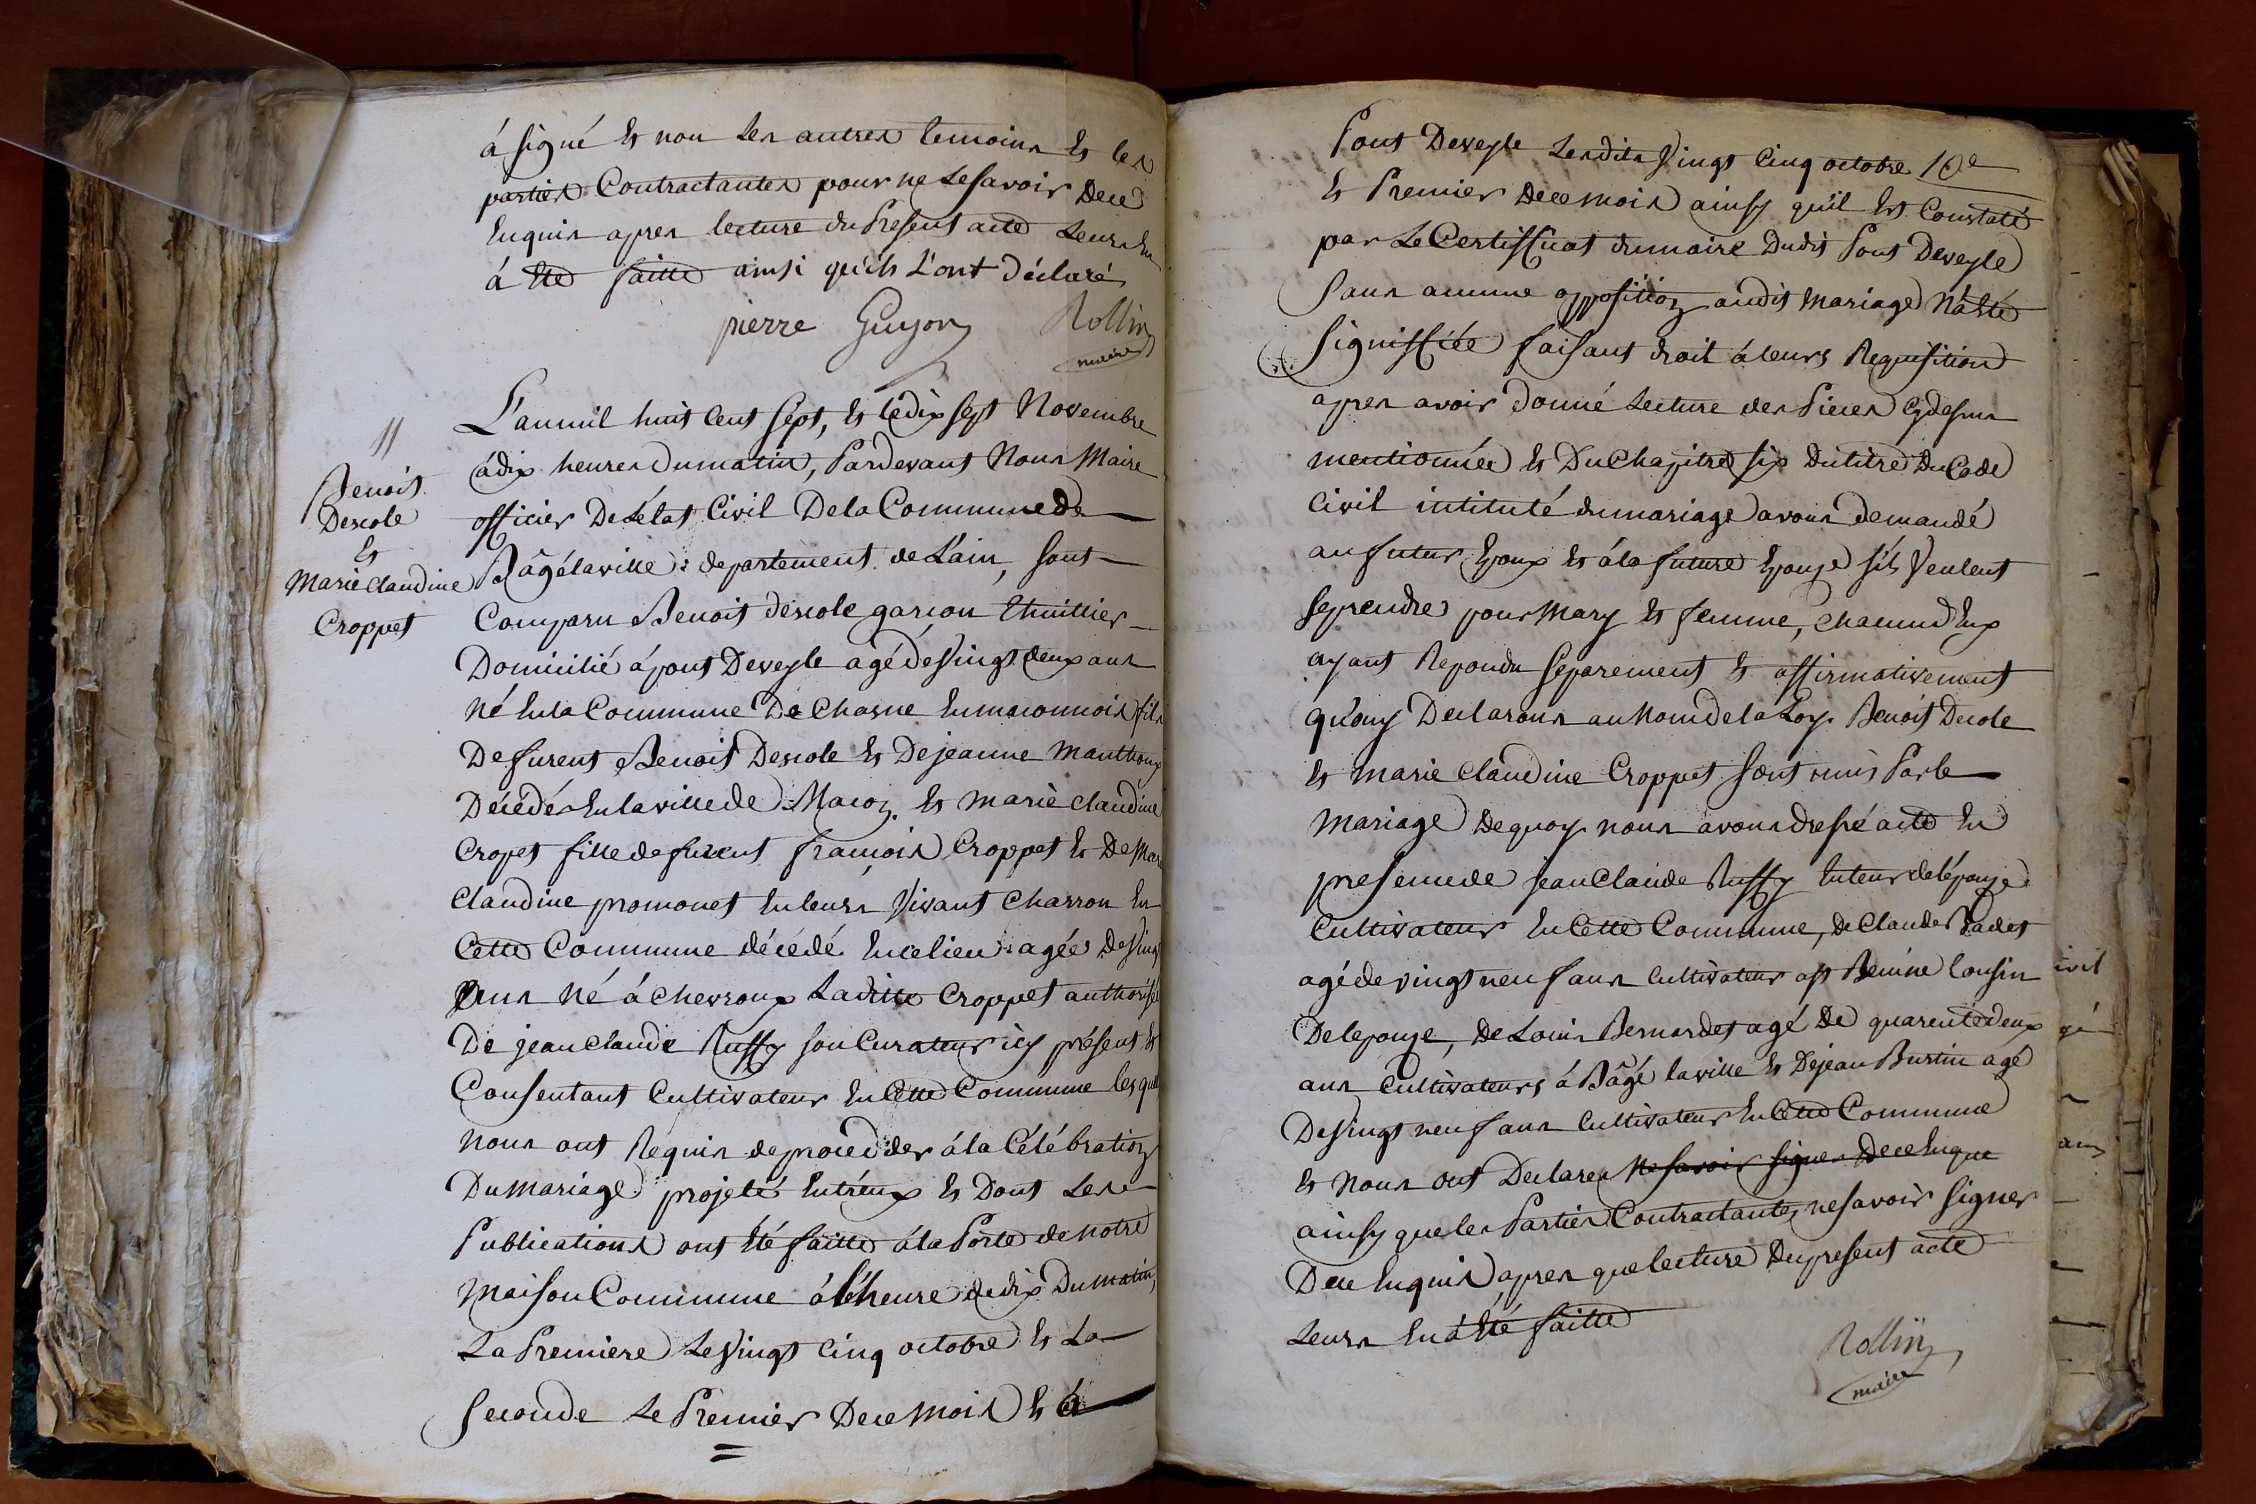 à signé et non les autres temoins et les
parties Contractantes pour ne le savoir De ce
Enquis apres lecture du Present acte Leurs En
à Eté faitte ainsi qu'ils L'ont déclaré
pierre Guyon Rollin
maire
11
Benoit
Descole
Et
Marie Claudine
Croppet
L'an mil huit Cent sept, Et le dix sept Novembre
à dix heures du matin, Pardevant Nous Maire
officier De L'état Civil De la Commune de
Bâgé laville : departement de L'ain, sont
Comparu Benoit descole garçon thuillier
Domicilié à pont Deveyle agé de Vingt deux ans
Né En la Commune De Chasne En maconnois fils
De furent Benoit Descole Et De jeanne Manthoux
Décédés En la ville de Macon. Et Marie Claudine
Cropet fille de furent françois Croppet Et De Marie
Claudine promonet En leurs Vivant Charron En
Cette Commune décédé En ce lieu : agée De Vingt
ans Né à Chevroux Laditte Croppet authorisée
De jean Claude Ruffy son Curateur icy présent Et
Consentant Cultivateur En Cette Commune lesquels
Nous ont Requis de proceder à la Célébration
Du Mariage projeté Entr'eux Et Dont Les
Publications ont Eté faitte à la Porte de notre
Maison Commune à l'heure de dix Du matin,
La Premiere Le Vingt Cinq octobre Et La
Seconde Le Premier De ce Mois Et à
Pont Deveyle Lesdits Vingt Cinq octobre
Et Premier De ce Mois ainsy qu'il Est Constaté
par Le Certifficat du maire Dudit Pont Deveyle
Sans aucune opposition audit Mariage N'a Eté
Signiffiée faisant droit à leurs Requisition
apres avoir donné Lecture des Pieces Cy desus
mentionnée Et Du Chapitre six Du titre Du Code
Civil intitulé du mariage avons demandé
au futur Epoux Et à la future Epouze s'ils Veulent
se prendre pour Mary Et femme, chacun d'Eux
ayant Repondu Separement Et affirmativement
qu'ouy Declarons au Nom de la Loy. Benoit Decole
Et Marie Claudine Croppet sont unis Par le
Mariage De quoy nous avons dressé acte En
presence de jean Claude Ruffy tuteur de l'épouze
Cultivateur En Cette Commune, De Claude Vadet
agé de vingt neuf ans Cultivateur a St Benine Cousin
De lepouze, De Louis Bernardet agé De quarente deux
ans Cultivateurs à Bâgé laville Et De jean Burtin agé
De Vingt neuf ans Cultivateur En Cette Commune
Et Nous ont Declarer Ne savoir signer De ce Enque
ainsy que les Parties Contractantes ne savoir Signer
De ce Enquis apres que lecture Du present acte
Leurs En a Eté faitte
Rollin
maire
ivil
gé
ans